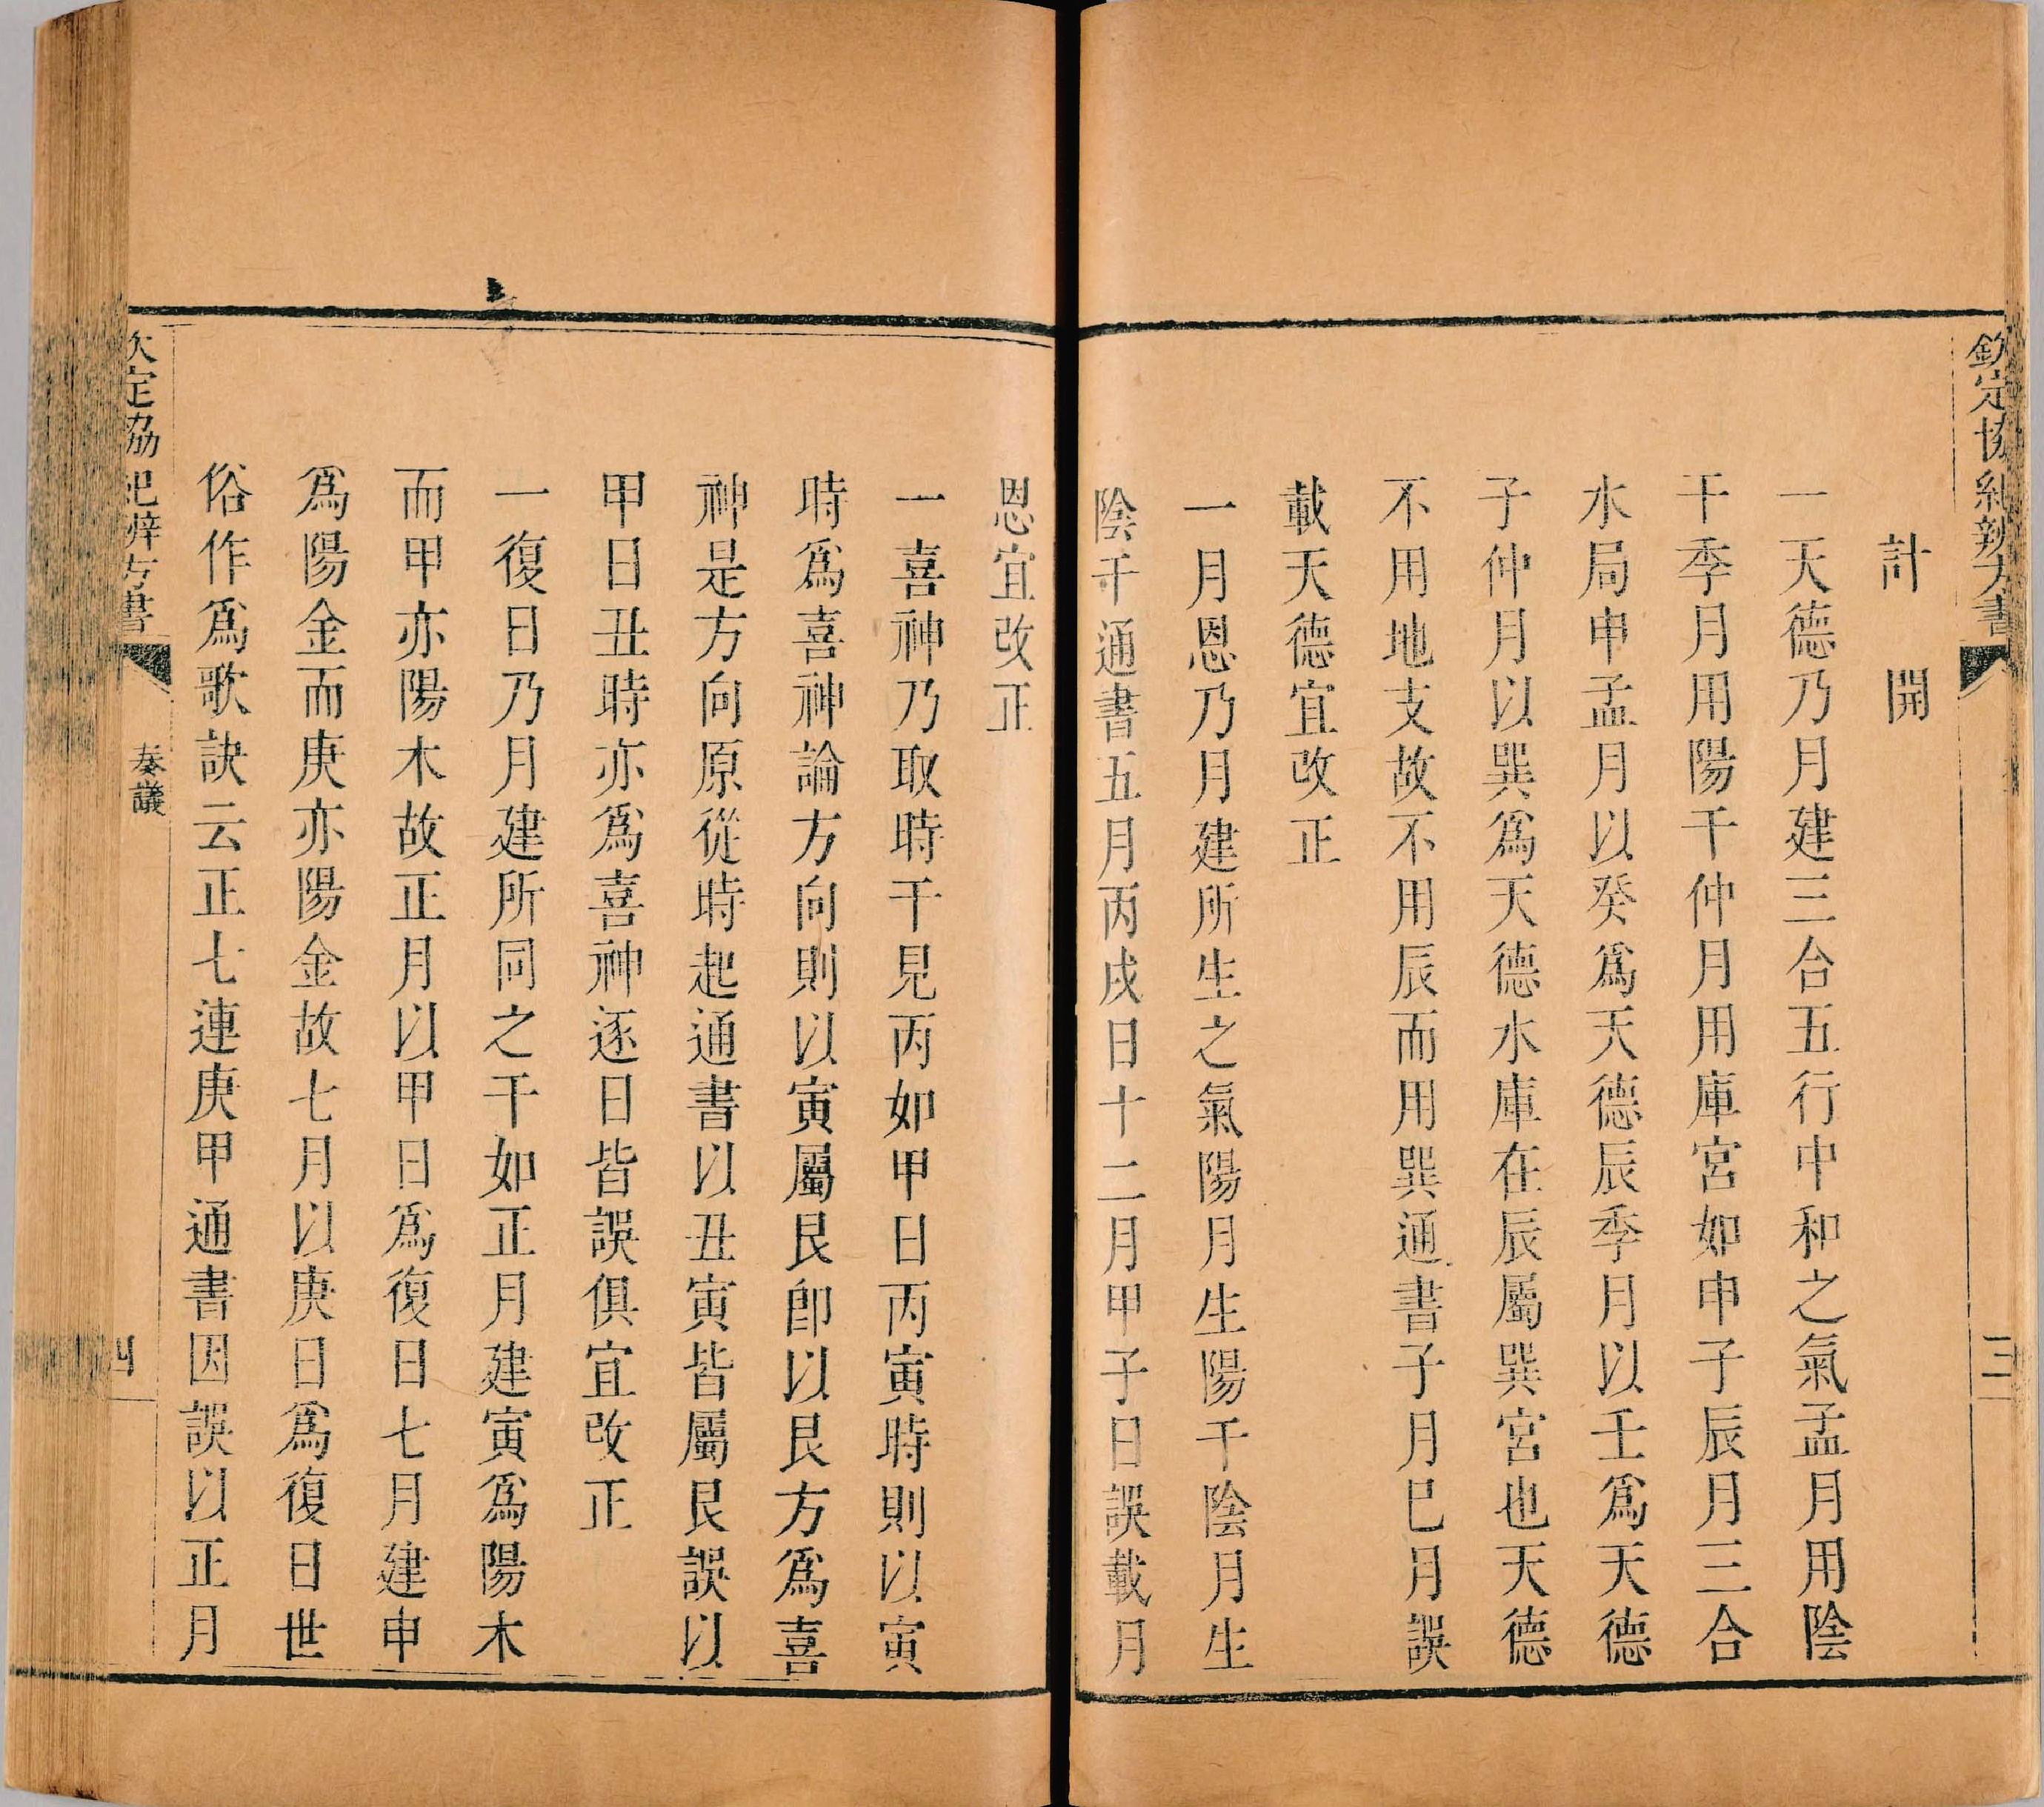 欽定協紀辨方書
三
計開
一天德乃月建三合五行中和之氣孟月用陰
干季月用陽干仲月用庫宮如申子辰月三合
水局申孟月以癸爲天德辰季月以壬爲天德
子仲月以巽爲天德水庫在辰屬巽宮也天德
不用地支故不用辰而用巽通書子月巳月誤
載天德宜改正
一月恩乃月建所生之氣陽月生陽干陰月生
陰干通書五月丙戌日十二月甲子日誤載月
恩宜改正
一喜神乃取時干見丙如甲日丙寅時則以寅
時爲喜神論方向則以寅屬艮卽以艮方爲喜
神是方向原從時起通書以丑寅皆屬艮誤以
甲日丑時亦爲喜神逐日皆誤俱宜改正
一復日乃月建所同之干如正月建寅爲陽木
而甲亦陽木故正月以甲日爲復日七月建申
爲陽金而庚亦陽金故七月以庚日爲復日世
俗作爲歌訣云正七連庚甲通書因誤以正月
欽定協紀辨方書
奏議
四